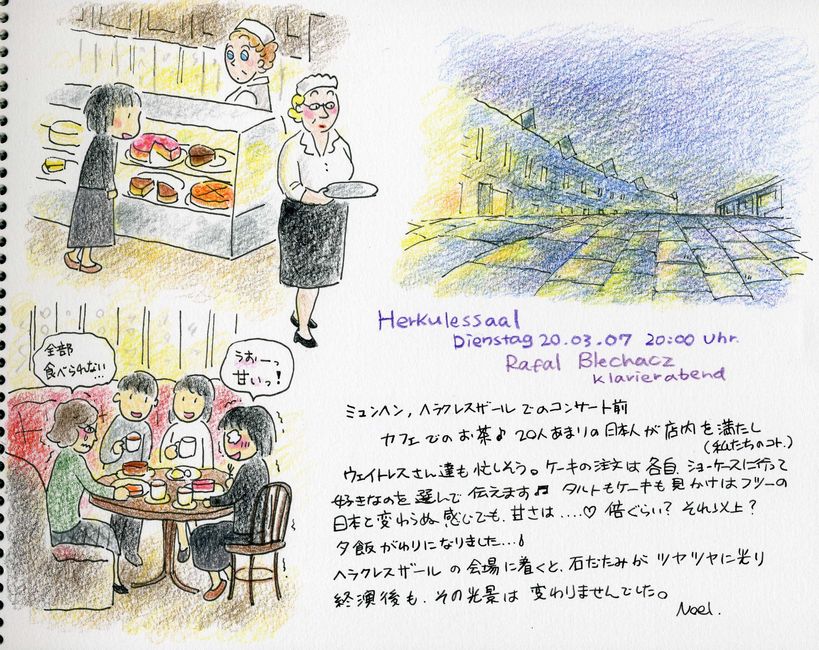 全部
食べられない…
うおーっ
甘いっ!
Herkulessaal
Dienstag 20.03.07 20:00 Uhr.
Rafal Blechacz
Klavierabend
ミュンヘン, ヘラクレスザールでのコンサート前
カフェでのお茶♪ 20人あまりの日本人が店内を満たし
(私たちのコト.)
ウェイトレスさん達も忙しそう。ケーキの注文は各自、ショーケースに行って
好きなのを選んで伝えます♬ タルトもケーキも見かけはフツーの
日本と変わらぬ感じでも、甘さは....♡ 倍ぐらい? それ以上?
夕飯がわりになりました...!
ヘラクレスザールの会場に着くと、石だたみがツヤツヤに光り
終演後も、その光景は変わりませんでした。
Noel.